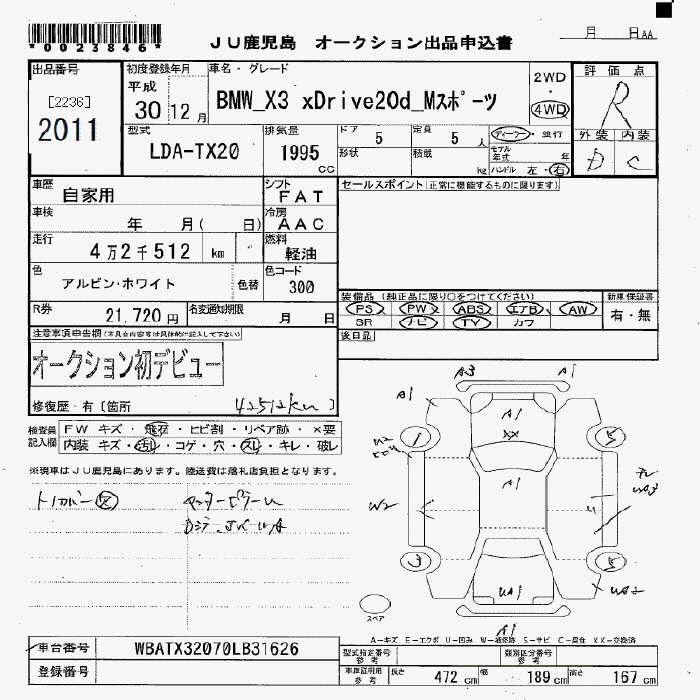 *0023846*
JU鹿児島 オークション出品申込書
月 日AA
出品番号
[2236]
2011
初度登録年月
平成
30 12月
車名・グレード
BMW_X3 xDrive20d_Mスポーツ
2WD
・
4WD
評価点
R
外装 内装
D C
型式
LDA-TX20
排気量
1995
CC
ドア 5
定員 5 人
形状
積載 kg
ディーラー・並行
モデル年式 年
ハンドル 左・右
車歴
自家用
シフト
FAT
セールスポイント(正常に機能するものに限ります)
車検
年 月( 日)
冷房
AAC
走行
4万2千512 km
燃料
軽油
色
アルビン・ホワイト
色替
色コード
300
装備品(純正品に限り○をつけてください)
新車保証書
PS PW ABS エアB AW
有・無
SR ナビ TV カワ
R券
21,720円
名変通知期限
月 日
後日品
注意事項申告欄(不具合内容等は具体的に記入して下さい)
オークション初デビュー
修復歴・有〔箇所 42512km 〕
検査員記入欄
FW キズ・飛石・ヒビ割・リペア跡・×要
内装 キズ・汚れ・コゲ・穴・スレ・キレ・破レ
※現車はJU鹿児島にあります。陸送費は落札店負担となります。
A3 A1
A1
A1
XX
A1
W2
3
UA1
A1
スペア
A-キズ E-エクボ U-凹み W-補修跡 S-サビ C-腐食 XX-交換済
車台番号
WBATX32070LB31626
登録番号
型式指定番号
参考
類別区分番号
参考
車庫証明用
参考
長さ 472 cm
幅 189 cm
高さ 167 cm